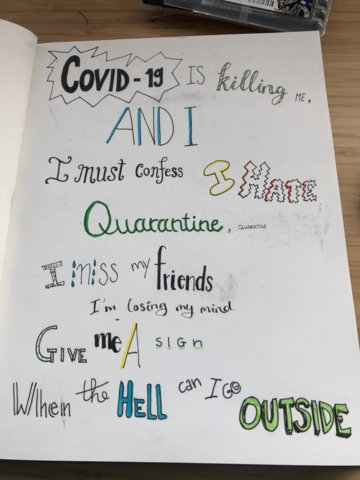 COVID-19 IS killing ME,
AND I
I must confess I HATE
Quarantine, QUARANTINE
I miss my friends
I'm losing my mind
GIVE me A SIGN
When the HELL can I GO OUTSIDE